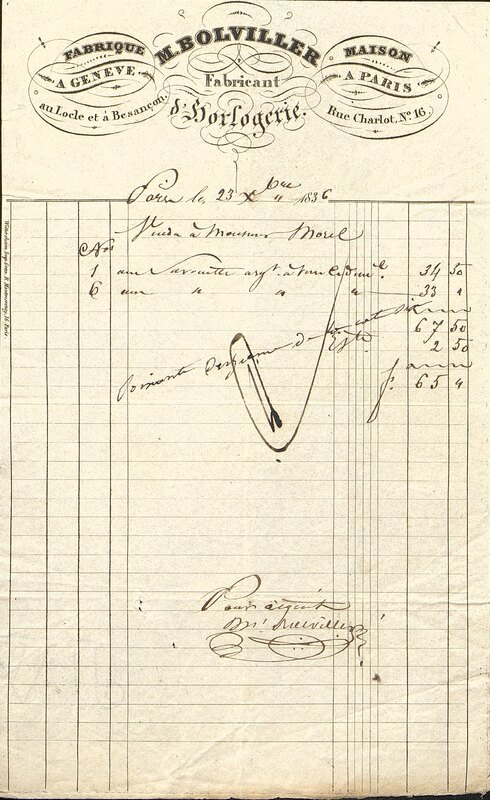 FABRIQUE
A GENEVE
au Locle et à Besançon.
M. BOLVILLER
Fabricant
d'Horlogerie.
MAISON
A PARIS
Rue Charlot, No. 16.
Paris le 23 Xbre 1836
Vendu à Monsieur Morel
Nos
1 une Savonette argt à 34 50
6 une " " " 33 "
67 50
2 50
Soixante de
f. 65 "
Pour acquit
Bolviller